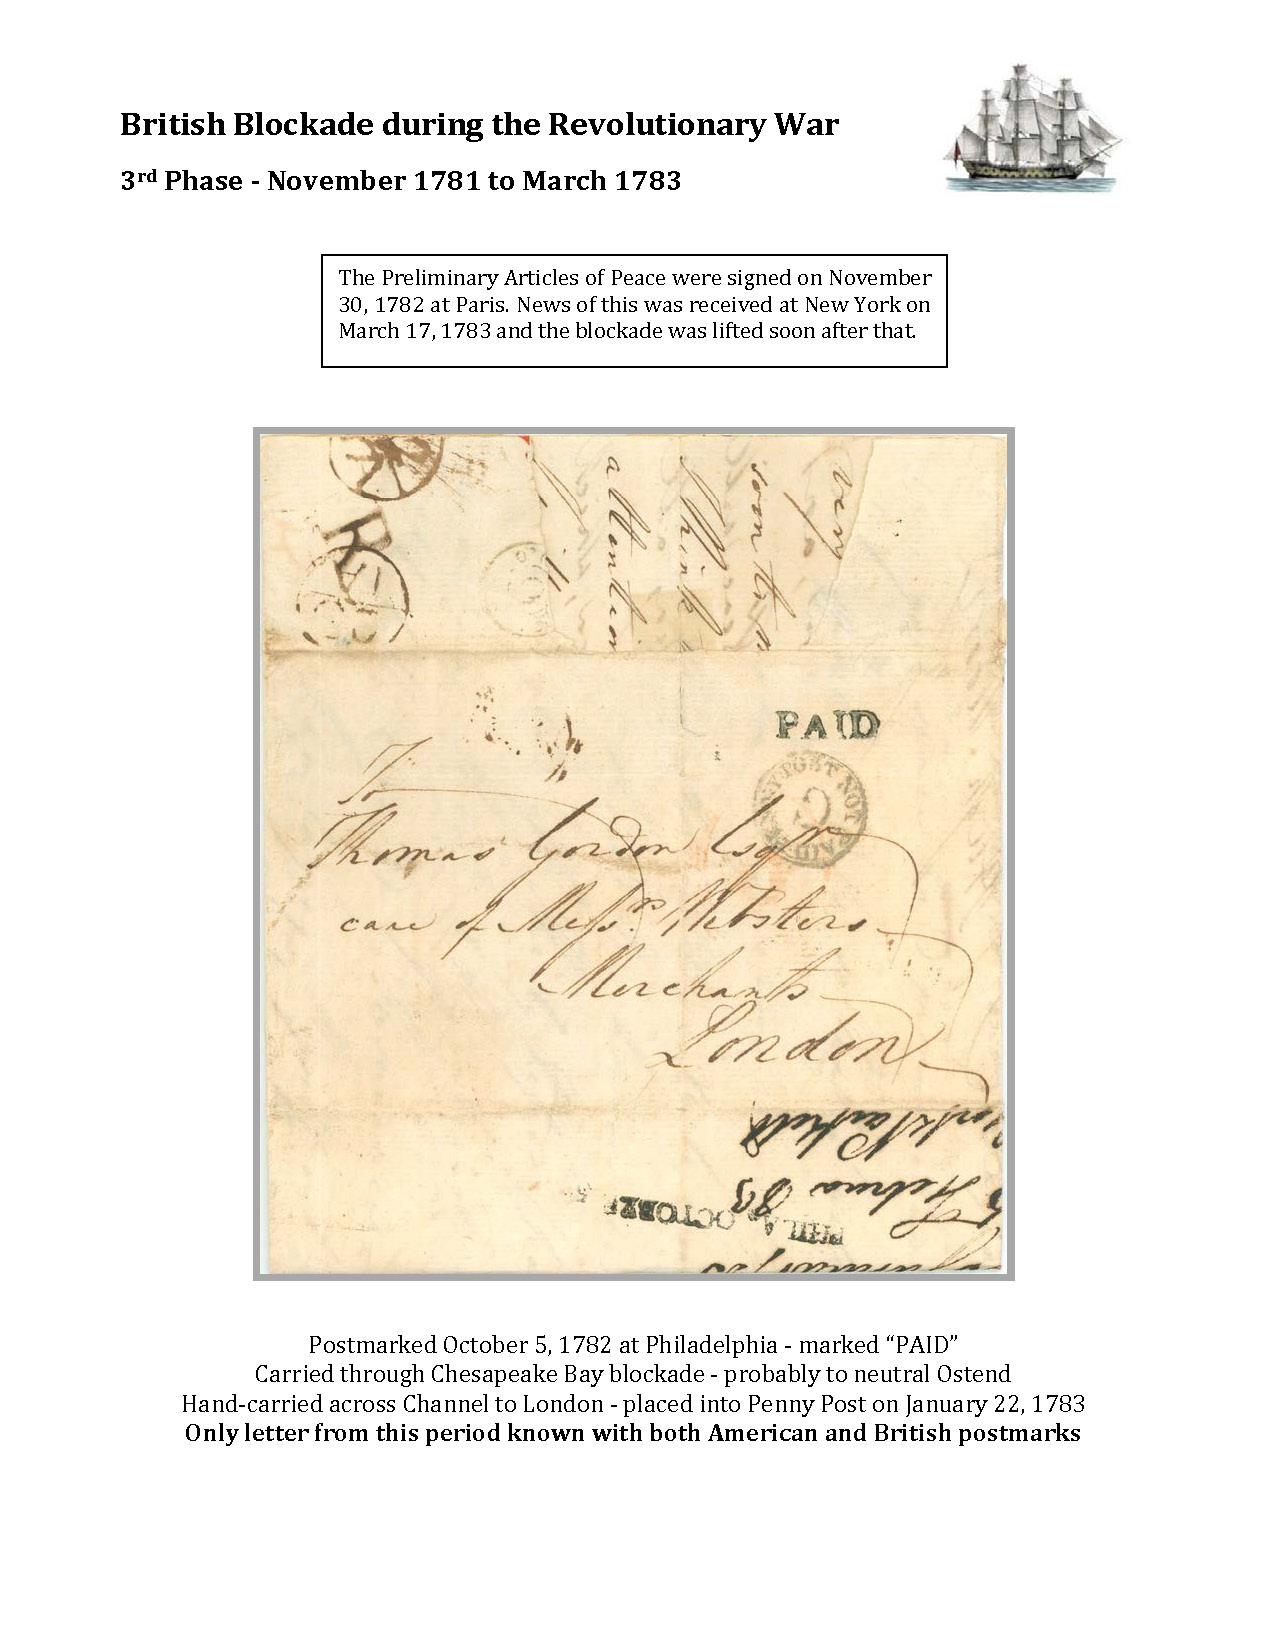 British Blockade during the Revolutionary War
3rd Phase - November 1781 to March 1783
The Preliminary Articles of Peace were signed on November
30, 1782 at Paris. News of this was received at New York on
March 17, 1783 and the blockade was lifted soon after that.
very
soon think
attention
PAID
PENY POST NOT PAID
To
Thomas Gordon Esqr
care of Messrs Websters
Merchants
London
PHILA. OCTOBER 5
Postmarked October 5, 1782 at Philadelphia - marked “PAID”
Carried through Chesapeake Bay blockade - probably to neutral Ostend
Hand-carried across Channel to London - placed into Penny Post on January 22, 1783
Only letter from this period known with both American and British postmarks